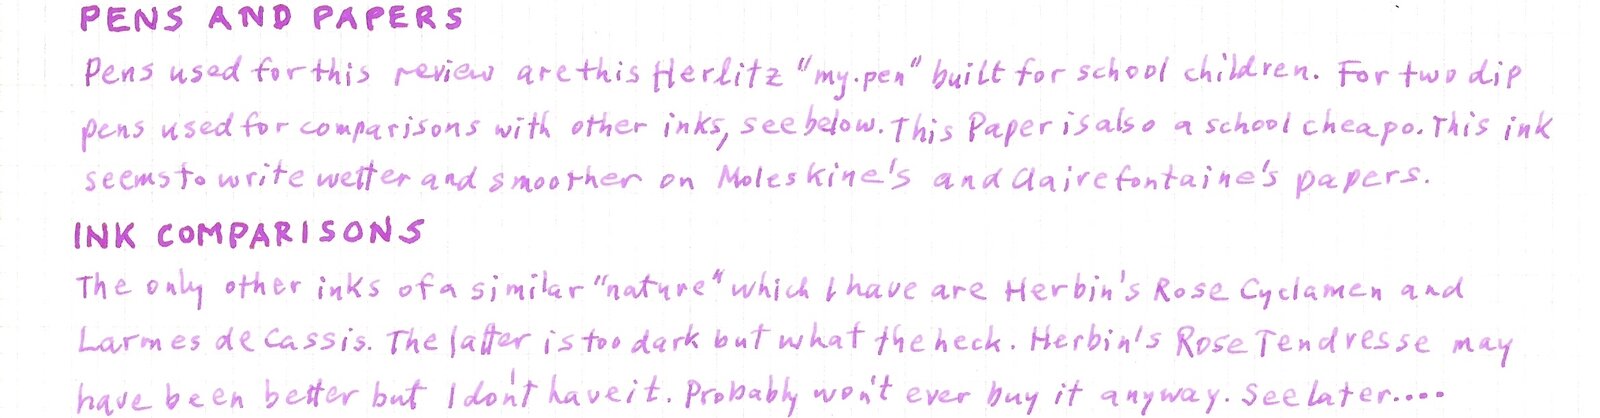 PENS AND PAPERS
Pens used for this review are this Herlitz "my.pen" built for school children. For two dip
pens used for comparisons with other inks, see below. This Paper is also a school cheapo. This ink
seems to write wetter and smoother on Moleskine's and Clairefontaine's papers.
INK COMPARISONS
The only other inks of a similar "nature" which I have are Herbin's Rose Cyclamen and
Larmes de Cassis. The latter is too dark but what the heck. Herbin's Rose Tendresse may
have been better but I don't have it. Probably won't ever buy it anyway. See later....